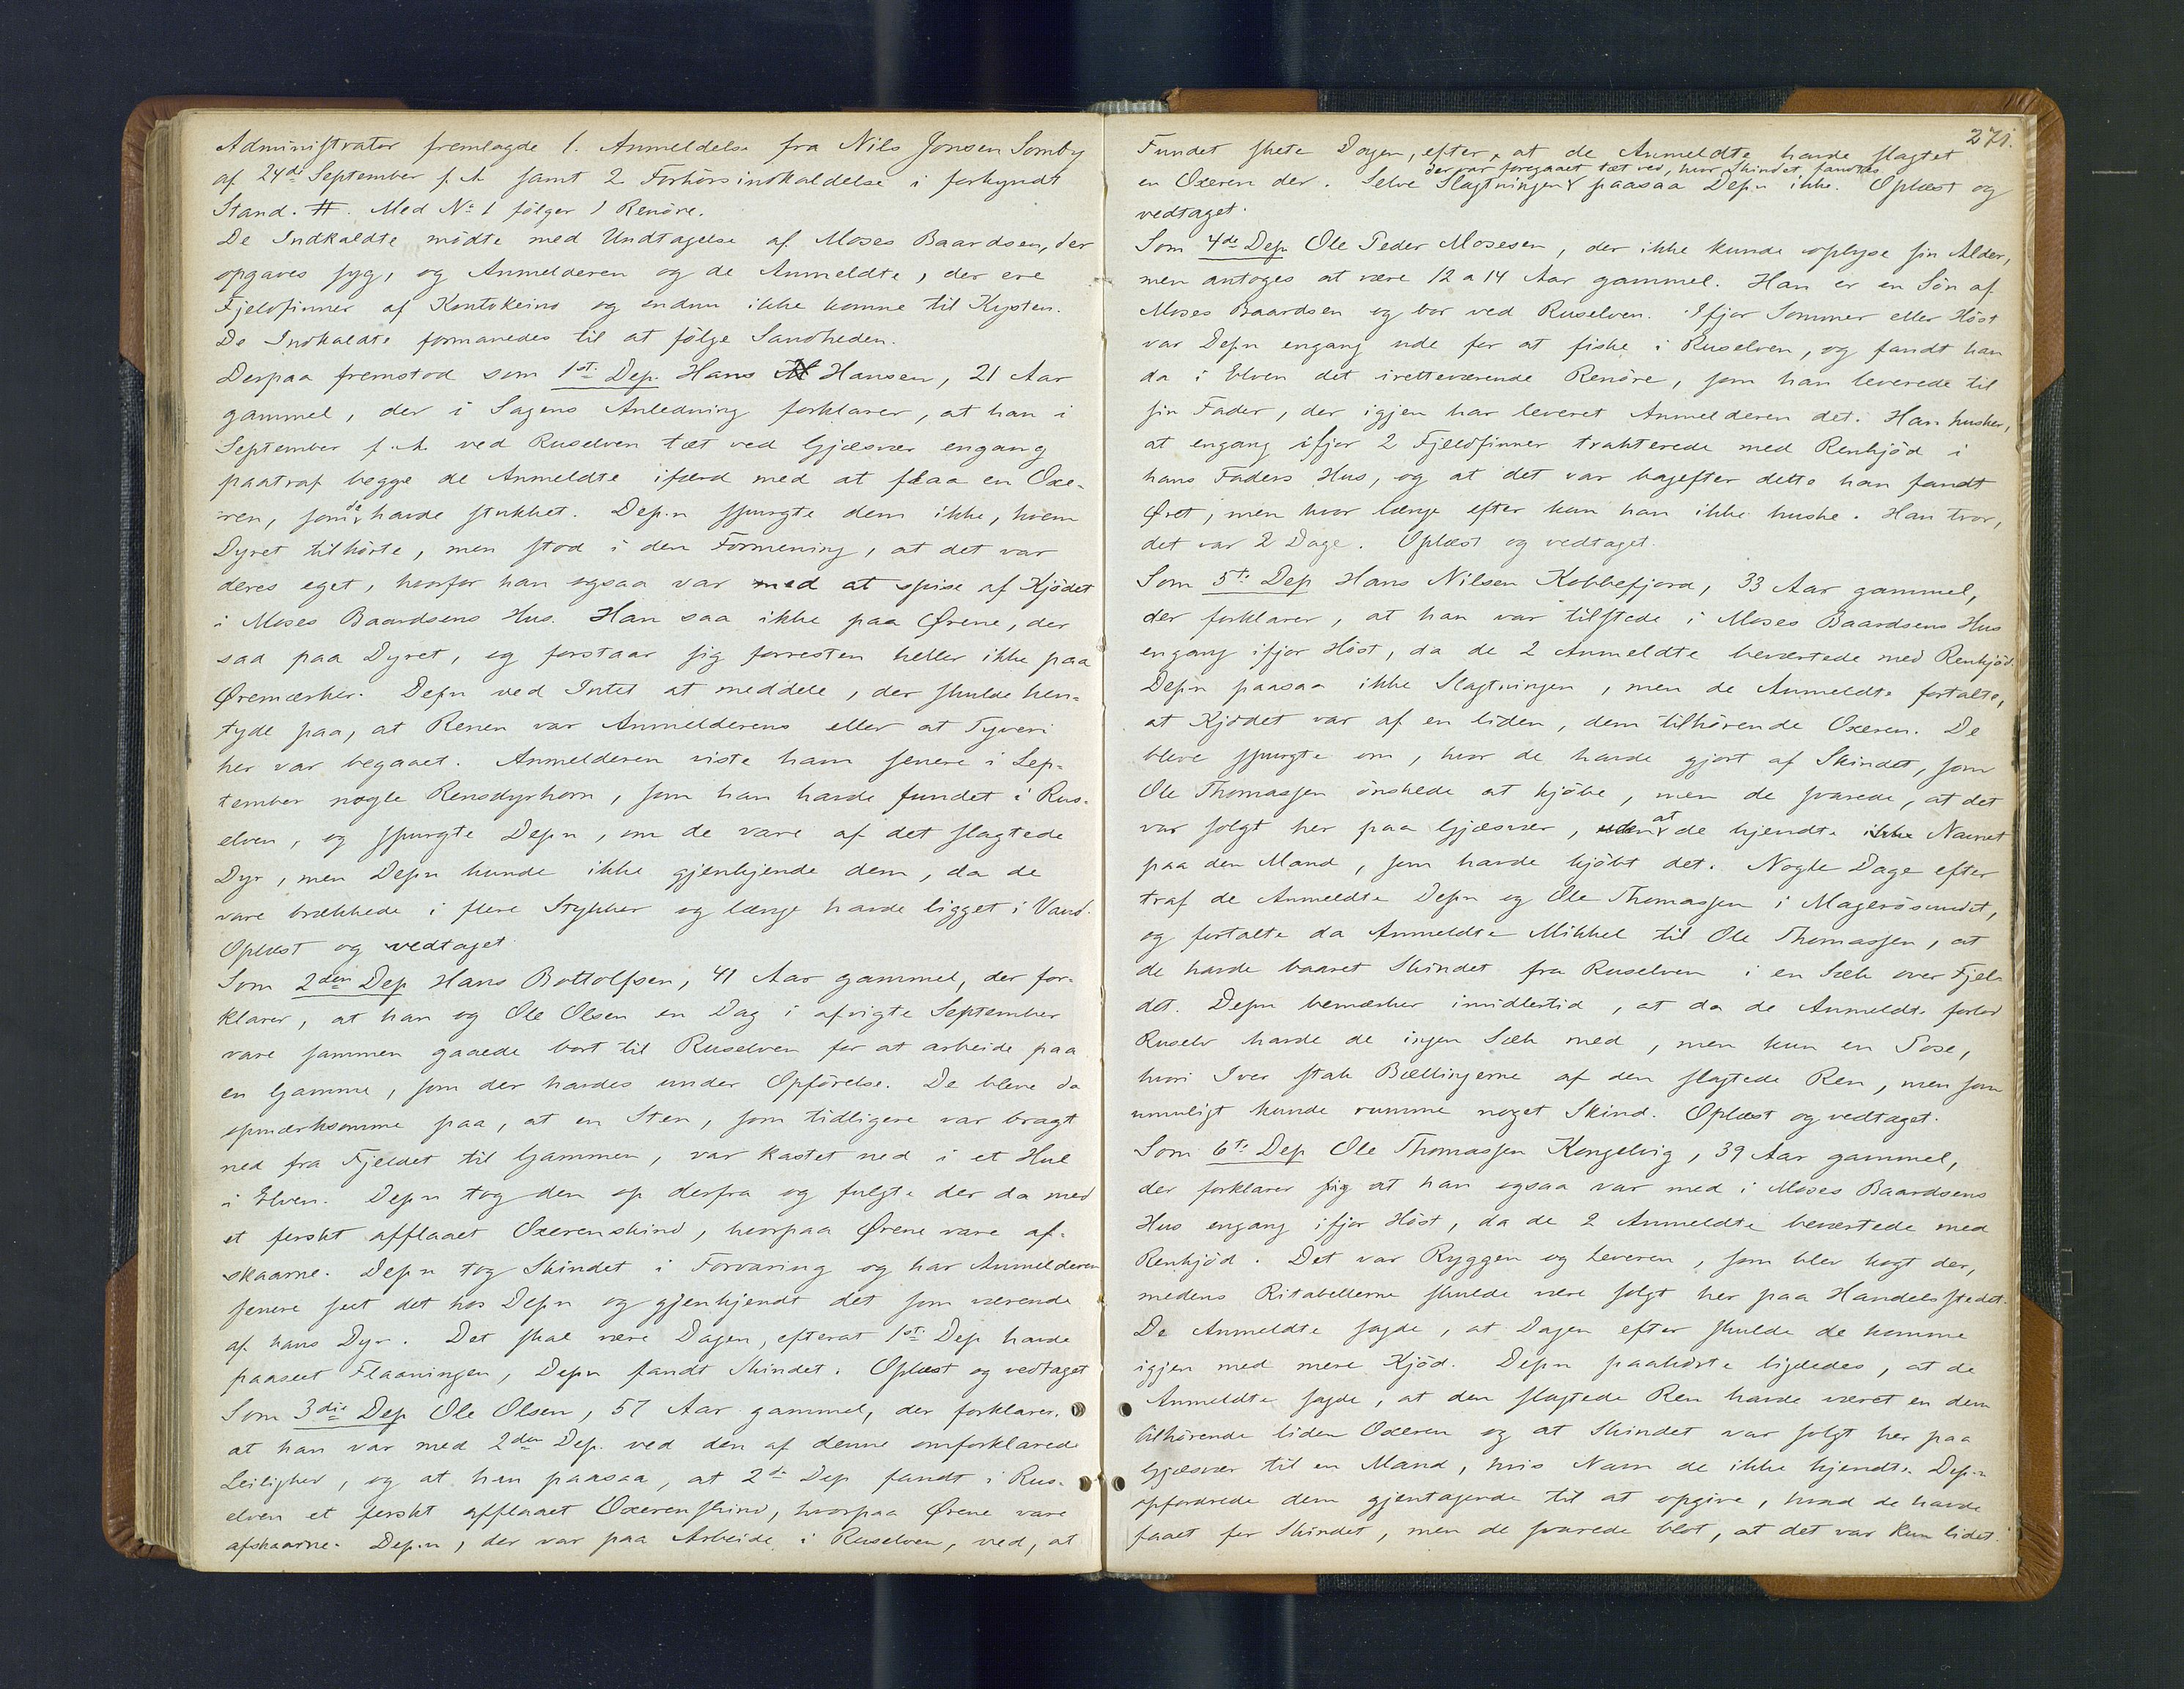 Administrator fremlagde 1. Anmeldelse fra Nils Jonsen Somby
af 24de September f. A samt 2 Forhörsindkaldelse i forkyndt
Stand. #. Med No 1 følger 1 Renöre.
De Indkaldte mödte med Undtagelse af Moses Baardsen, der
opgaves syg, og Anmelderen og de Anmeldte, der ere
Fjeldfinner af Kautokeino og endnu ikke komne til Kysten.
De Indkaldte formanedes til at fölge Sandheden.
Derpaa fremstod som 1ste Dep. Hans Hansen, 21 Aar
gammel, der i Sagens Anledning forklarer, at han i
September f. A. ved Ruselven tæt ved Gjæsvær engang
paatraf begge de Anmeldte ifærd med at flaa en Oxe-
ren, som de havde stukket. Dep.n spurgte dem ikke, hvem
Dyret tilhörte, men stod i den Formening, at det var
deres eget, hvorfor han ogsaa var med at spise af Kjödet
i Moses Baardsens Hus. Han saa ikke paa Ørene, der
saa paa Dyret, og forstaar sig forresten heller ikke paa
Øremærker. Depn ved Intet at meddele, der skulde hen-
tyde paa, at Renen var Anmelderens eller at Tyveri
her var begaaet. Anmelderen viste ham senere i Sep-
tember nogle Rensdyrhorn, som han havde fundet i Rus-
elven, og spurgte Depn, om de vare af det slagtede
Dyr, men Depn kunde ikke gjenkjende dem, da de
vare brækkede i flere Stykker og længe havde ligget i Vand.
Oplæst og vedtaget.
Som 2den Dep Hans Bottolfsen, 41 Aar gammel, der for-
klarer, at han og Ole Olsen en Dag i afvigte September
vare sammen gaaede bort til Ruselven for at arbeide paa
en Gamme, som der havdes under Opförelse. De bleve da
opmærksomme paa, at en Sten, som tidligere var bragt
ned fra Fjeldet til Gammen, var kastet ned i et Hul
i Elven. Depn tog den op derfra og fulgte der da med
et ferskt afflaaet Oxerenskind, hvorpaa Ørene vare af-
skaarne. Depn tog Skindet i Forvaring og har Anmelderen
senere seet det hos Depn og gjenkjendt det som værende
af hans Dyr. Det skal være Dagen, efterat 1ste Dep havde
paaseet Flaaningen, Depn fandt Skindet. Oplæst og vedtaget
Som 3die Dep Ole Olsen, 57 Aar gammel, der forklarer,
at han var med 2den Dep. ved den af denne omforklarede
Leilighed, og at han paasaa, at 2de Dep fandt i Rus-
elven et ferskt afflaaet Oxerenskind, hvorpaa Ørene vare
afskaarne. Dep.n, der var paa Arbeide i Ruselven, ved, at
271.
Fundet skete Dagen, efter, at de Anmeldte havde slagtet
der var foregaaet tæt ved, hvor Skindet fandtes
en Oxeren der. Selve Slagtningen paasaa Depn ikke. Oplæst og
vedtaget.
Som 4de Dep Ole Peder Mosesen, der ikke kunde oplyse sin Alder,
men antoges at være 12 a 14 Aar gammel. Han er en Sön af
Moses Baardsen og bor ved Ruselven. Ifjor Sommer eller Höst
var Depn engang ude for at fiske i Ruselven, og fandt han
da i Elven det iretteværende Renöre, som han leverede til
sin Fader, der igjen har leveret Anmelderen det. Han husker,
at engang ifjor 2 Fjeldfinner trakterede med Renkjöd i
hans Faders Hus, og at det var bagefter dette han fandt
Øret, men hvor længe efter kan han ikke huske. Han tror,
det var 2 Dage. Oplæst og vedtaget.
Som 5te Dep Hans Nilsen Kobbefjord, 33 Aar gammel,
der forklarer, at han var tilstede i Moses Baardsens Hus
engang ifjor Höst, da de 2 Anmeldte beværtede med Renkjöd.
Depn paasaa ikke Slagtningen, men de Anmeldte fortalte,
at Kjödet var af en liden, dem tilhörende Oxeren. De
bleve spurgte om, hvor de havde gjort af Skindet, som
Ole Thomassen önskede at kjöbe, men de svarede, at det
var solgt her paa Gjæsvær, uden at de kjendte ikke Navnet
paa den Mand, som havde kjöbt det. Nogle Dage efter
traf de Anmeldte Depn og Ole Thomassen i Magerösundet,
og fortalte da Anmeldte Mikkel til Ole Thomassen, at
de havde baaret Skindet fra Ruselven i en Sæk over Fjel-
det. Depn bemærker imidlertid, at da de Anmeldte forlod
Ruselv havde de ingen Sæk med, men kun en Pose,
hvori Iver stak Bællingerne af den slagtede Ren, men som
umuligt kunde rumme noget Skind. Oplæst og vedtaget.
Som 6te Dep Ole Thomassen Kongelvig, 39 Aar gammel,
der forklarer sig at han ogsaa var med i Moses Baardsens
Hus engang ifjor Höst, da de 2 Anmeldte beværtede med
Renkjöd. Det var Ryggen og Leveren, som blev kogt der,
medens Ritabellerne skulde være solgt her paa Handelsstedet.
De Anmeldte sagde, at Dagen efter skulde de komme
igjen med mere Kjöd. Depn paahörte ligeledes, at de
Anmeldte sagde, at den slagtede Ren havde været en dem
tilhörende liden Oxeren og at Skindet var solgt her paa
Gjæsvær til en Mand, hvis Navn de ikke kjendte. Dep.n
opfordrede dem gjentagende til at opgive, hvad de havde
faaet for Skindet, men de svarede blot, at det var kun lidet.